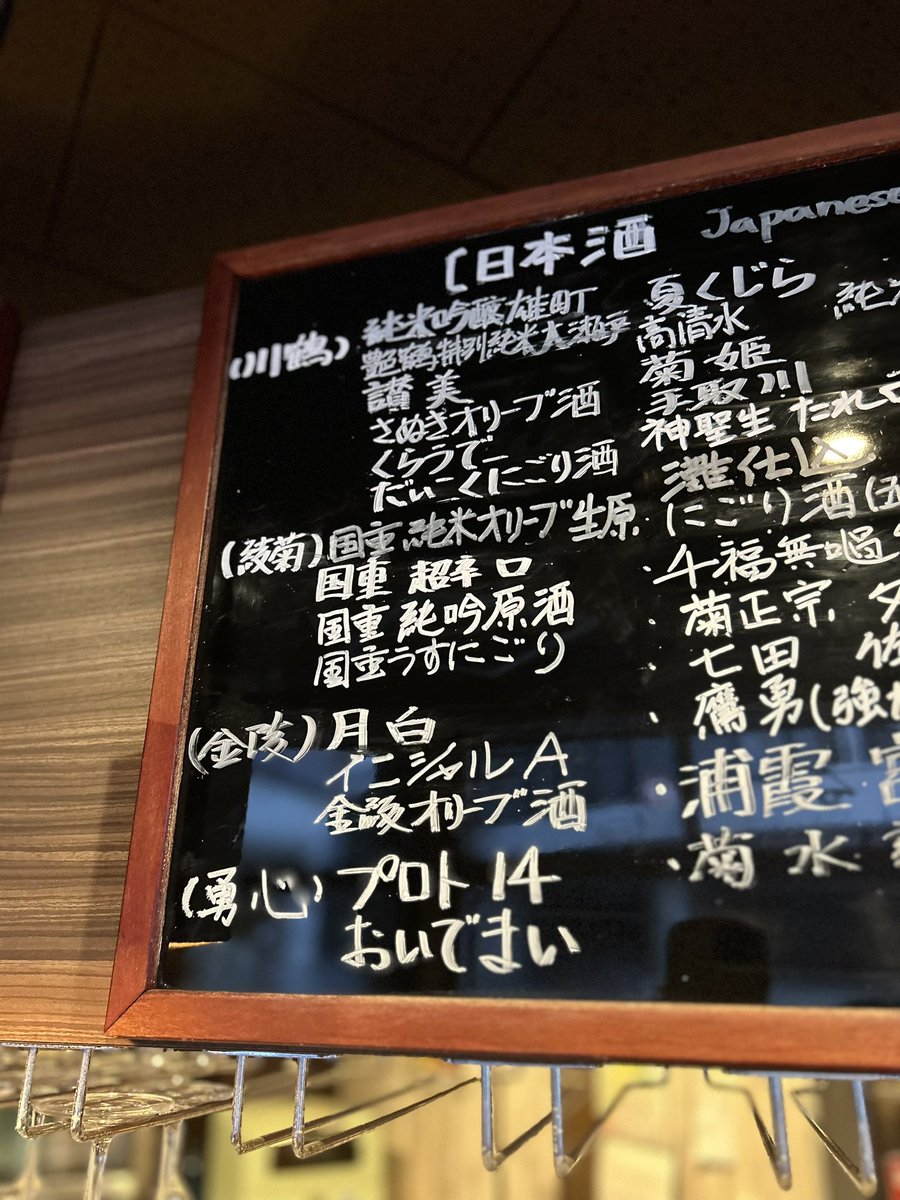 〔日本酒 Japanese
(川鶴) 純米吟醸雄町
特別純米大瀬戸
讃美
さぬきオリーブ酒
くらうでー
だいこくにごり酒
(綾菊) 国重 純米オリーブ生原
国重 超辛口
国重 純吟原酒
国重うすにごり
(金陵) 月白
イニシャルA
金陵オリーブ酒
(勇心) プロト14
おいでまい
夏くじら
高清水 純
菊姫
手取川
神聖生 たれ口
灘仕込
にごり酒(五
・千福無
・菊正宗
・七田 佐
・鷹勇(強
・浦霞 宮
・菊水